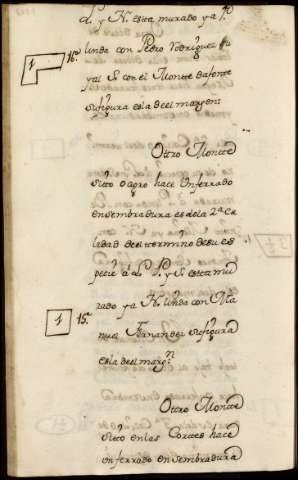 d. y N. esta murado y a P.
linda con Pedro Rodriguez fu
y al S. con el Monte da fonte
su figura es la de el margen
1 16.
Ottro Montte
sitto o agro hace Un ferrado
en sembradura es de la 2ª Ca
lidad de el termino de su es
pecie a L. P. y S. esta mu
rado y a N. linda con Ma
nuel Fernandez su figura
es la de el margn
1 15.
Ottro Montte
sitto en las Corttes hace
un ferrado en sembradura